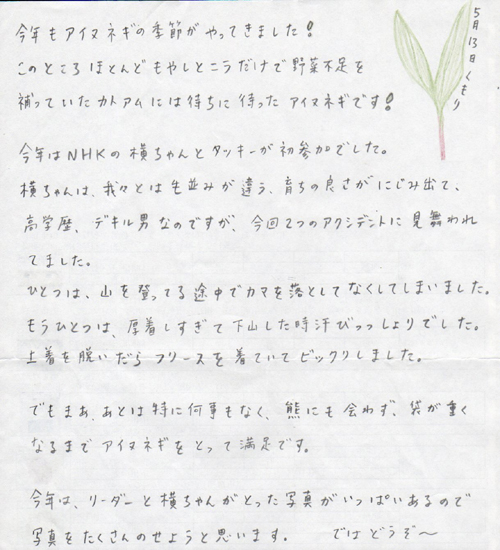 5月13日くもり
今年もアイヌネギの季節がやってきました!
このところほとんどもやしとニラだけで野菜不足を
補っていたカトアムには待ちに待ったアイヌネギです!
今年はNHKの横ちゃんとタッキーが初参加でした。
横ちゃんは、我々とは毛並みが違う、育ちの良さがにじみ出て、
高学歴、デキル男なのですが、今回2つのアクシデントに見舞われ
てました。
ひとつは、山を登ってる途中でカマを落としてなくしてしまいました。
もうひとつは、厚着しすぎて下山した時汗びっっしょりでした。
上着を脱いだらフリースを着ていてビックリしました。
でもまあ、あとは特に何事もなく、熊にも会わず、袋が重く
なるまでアイヌネギをとって満足です。
今年は、リーダーと横ちゃんがとった写真がいっぱいあるので
写真をたくさんのせようと思います。 ではどうぞ〜